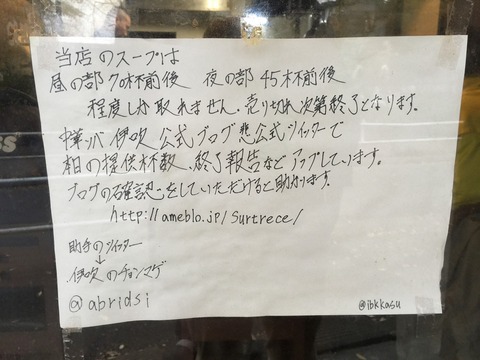 当店のスープは
昼の部70杯前後 夜の部45杯前後
程度しか取れません。売り切れ次第終了となります。
中華ソバ 伊吹 公式ブログ 非公式ツイッターで
朝の提供杯数、終了報告など アップしています。
ブログの確認をしていただけると助かります。
http://ameblo.jp/surtrece/
助手のツイッター
↓
伊吹のチョンマゲ
@abridsi
@ibkkasu